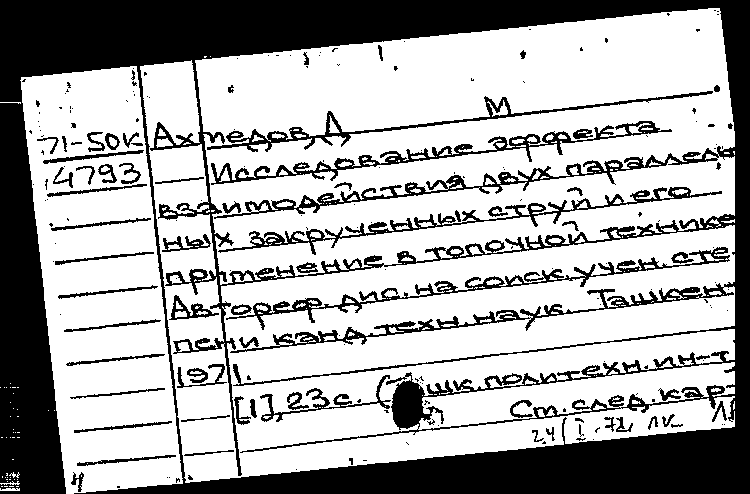 М
71-50к Ахмедов, Д
4793 Исследование эффекта
взаимодействия двух параллель
ных закрученных струй и его
применение в топочной технике
Автореф. дис. на соиск. учен. сте-
пени канд. техн. наук. Ташкент
1971.
[1], 23 с. (Ташк. политехн. ин-т
См. след. кар
24/I.72, лк